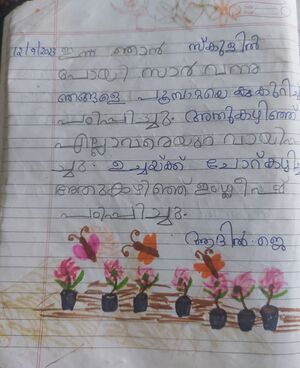 12/9/2023 ഇന്ന് ഞാൻ സ്കൂളിൽ
പോയി സാർ വന്നു
ഞങ്ങളെ പൂമ്പാറ്റയെ കുറിച്ച്
പഠിപ്പിച്ചു. അതുകഴിഞ്ഞ്
എല്ലാവരെയും വായിപ്പി
ച്ചു. ഉച്ചയ്ക്ക് ചോറ്കഴിച്ചു
അതുകഴിഞ്ഞ് ഇംഗ്ലീഷ്
പഠിപ്പിച്ചു.
ആദിൽ. ജെ